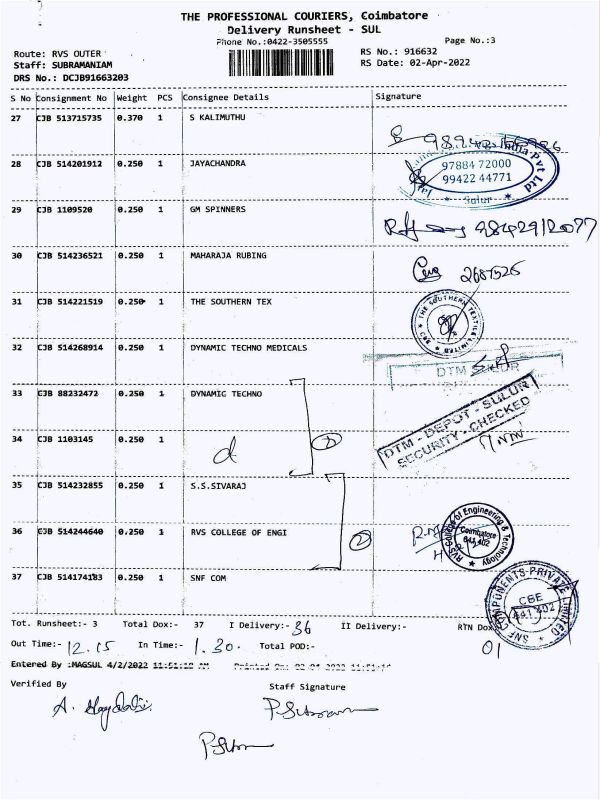 THE PROFESSIONAL COURIERS, Coimbatore
Delivery Runsheet - SUL
Phone No.:0422-3505555
Page No.:3
Route: RVS OUTER
RS No.: 916632
Staff: SUBRAMANIAM
RS Date: 02-Apr-2022
DRS No.: DCJB91663203
S No Consignment No Weight PCS Consignee Details Signature
27 CJB 513715735 0.370 1 S KALIMUTHU
28 CJB 514201912 0.250 1 JAYACHANDRA
97884 72000
99422 44771
Sulur
29 CJB 1109520 0.250 1 GM SPINNERS
30 CJB 514236521 0.250 1 MAHARAJA RUBING
31 CJB 514221519 0.250 1 THE SOUTHERN TEX
32 CJB 514268914 0.250 1 DYNAMIC TECHNO MEDICALS
33 CJB 88232472 0.250 1 DYNAMIC TECHNO
DTM - DEPOT - SULUR
SECURITY - CHECKED
34 CJB 1103145 0.250 1
35 CJB 514232855 0.250 1 S.S.SIVARAJ
36 CJB 514244640 0.250 1 RVS COLLEGE OF ENGI
RVS College of Engineering & Technology
Coimbatore
641 402
37 CJB 514174183 0.250 1 SNF COM
SNF COMPONENTS PRIVATE LIMITED
CBE
641 402
Tot. Runsheet:- 3 Total Dox:- 37 I Delivery:- 36 II Delivery:- RTN Dox
01
Out Time:- 12.15 In Time:- 1.30. Total POD:-
Entered By :MAGSUL 4/2/2022
Verified By
Staff Signature